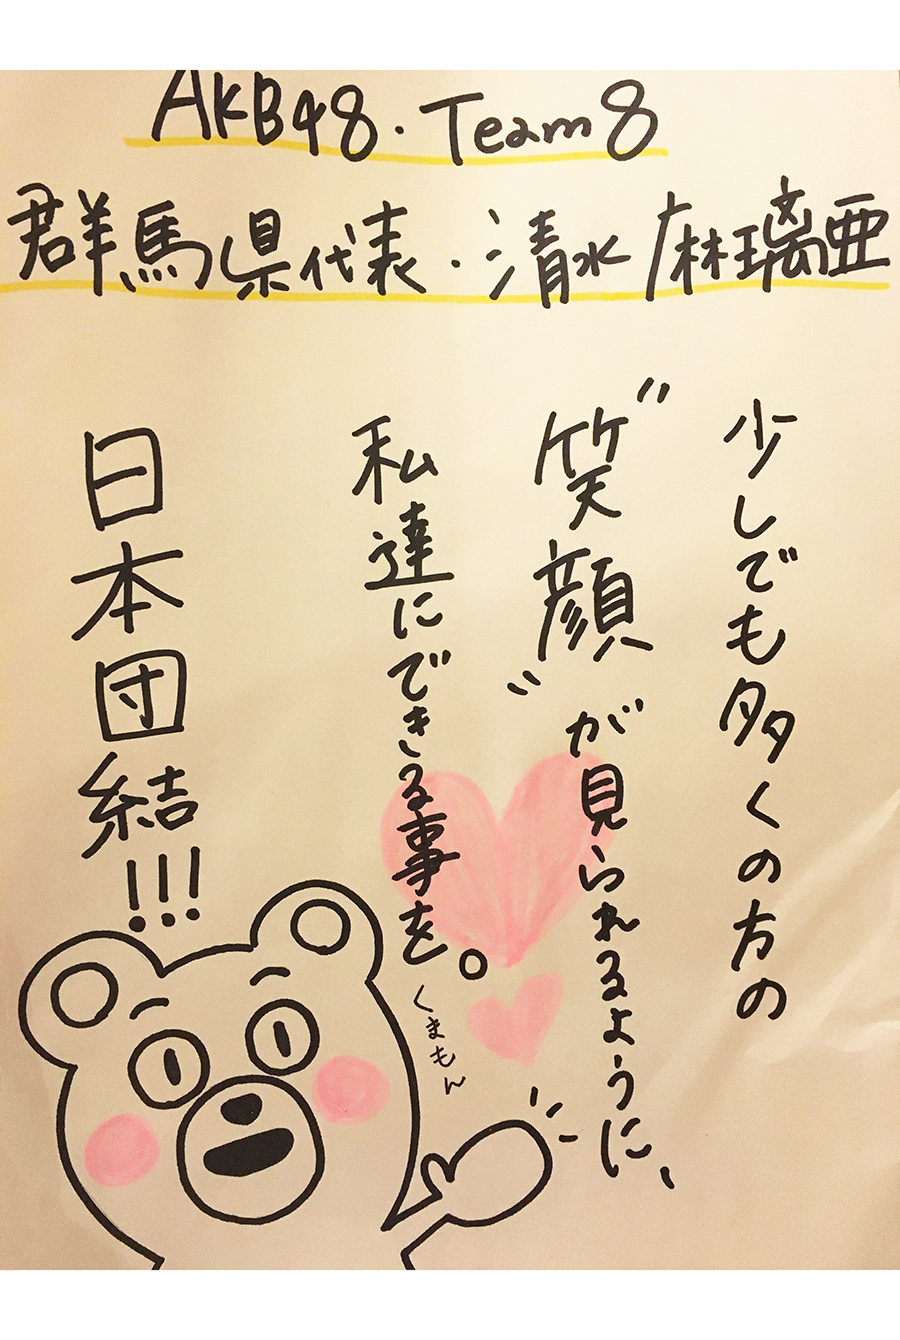 AKB48・Team8
群馬県代表・清水麻璃亜
少しでも多くの方の
"笑顔"が見られるように、
私達にできる事を。
日本団結!!!
くまもん